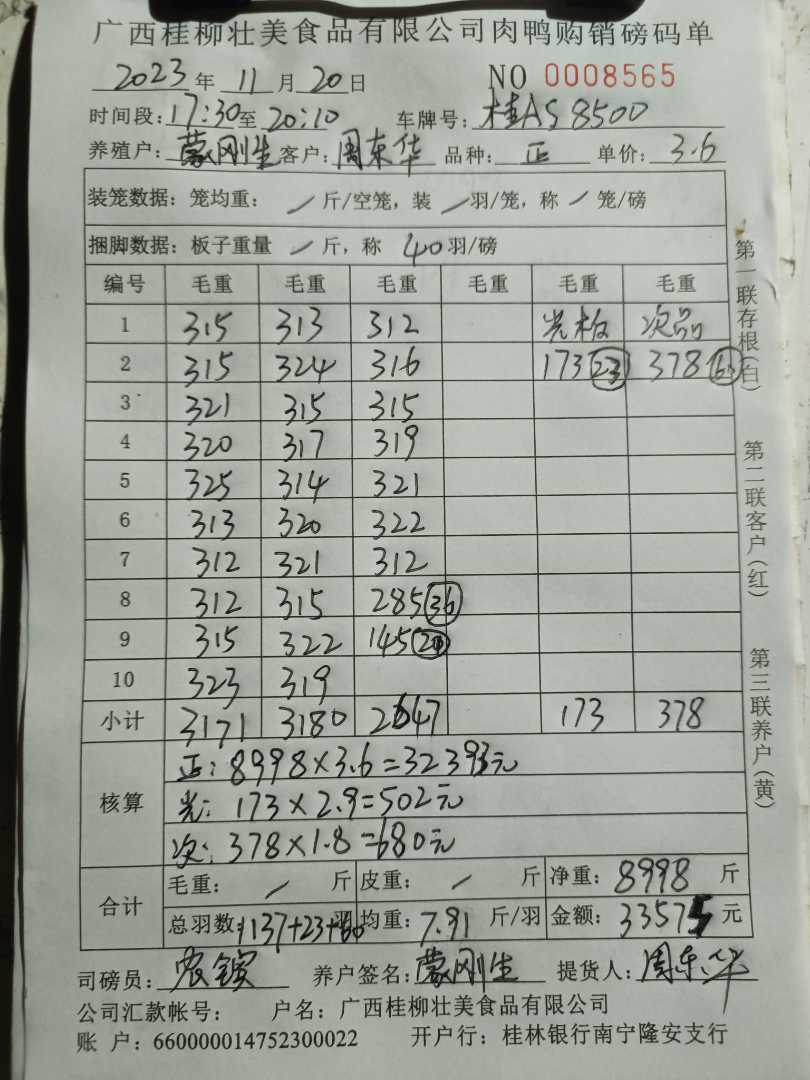 广西桂柳壮美食品有限公司肉鸭购销磅码单
2023年 11月20日 NO 0008565
时间段:17:30至20:10 车牌号:桂AS8500
养殖户:蒙刚生 客户:周东华 品种:正 单价:3.6
装笼数据:笼均重: / 斤/空笼,装 / 羽/笼,称 / 笼/磅
捆脚数据:板子重量 / 斤,称 40羽/磅
编号 毛重 毛重 毛重 毛重 毛重 毛重
1 315 313 312 光板 次品
2 315 324 316 173 23 378
3 321 315 315
4 320 317 319
5 325 314 321
6 313 320 322
7 312 321 312
8 312 315 285 36
9 315 322 145
10 323 319
小计 3171 3180 2647 173 378
核算 正:8998×3.6=32393元
光:173×2.9=502元
次:378×1.8=680元
合计 毛重: / 斤 皮重: / 斤 净重:8998斤
总羽数:1137+23+60羽 均重:7.91斤/羽 金额:33575元
司磅员: 养户签名:蒙刚生 提货人:周东华
公司汇款帐号: 户名:广西桂柳壮美食品有限公司
账 户:660000014752300022 开户行:桂林银行南宁隆安支行
第一联存根(白)
第二联客户(红)
第三联养户(黄)